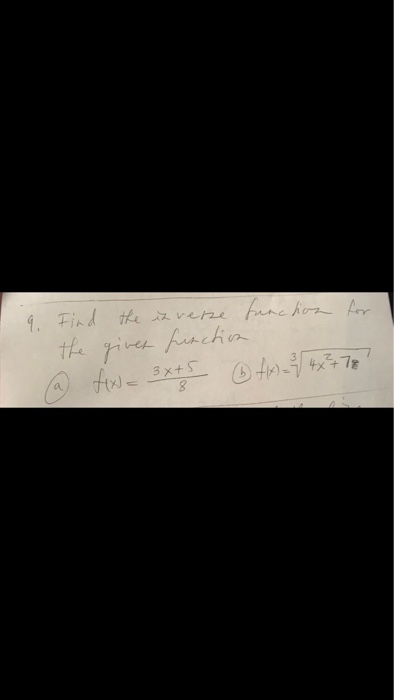 9. Find the inverse function for
the given function
(a) f(x) = 3x+5/8 (b) f(x) = ∛4x²+7